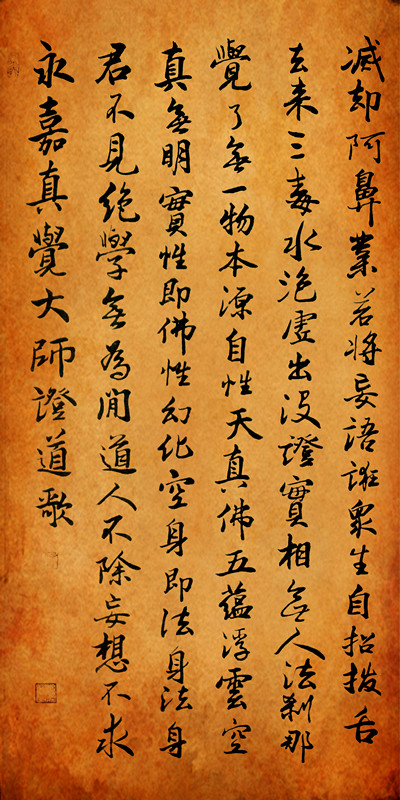 永嘉真覺大師證道歌
君不見絶學無為閒道人不除妄想不求
真無明實性即佛性幻化空身即法身法身
覺了無一物本源自性天真佛五蘊浮雲空
去来三毒水泡虛出沒證實相無人法刹那
滅却阿鼻業若將妄語誑衆生自招拔舌